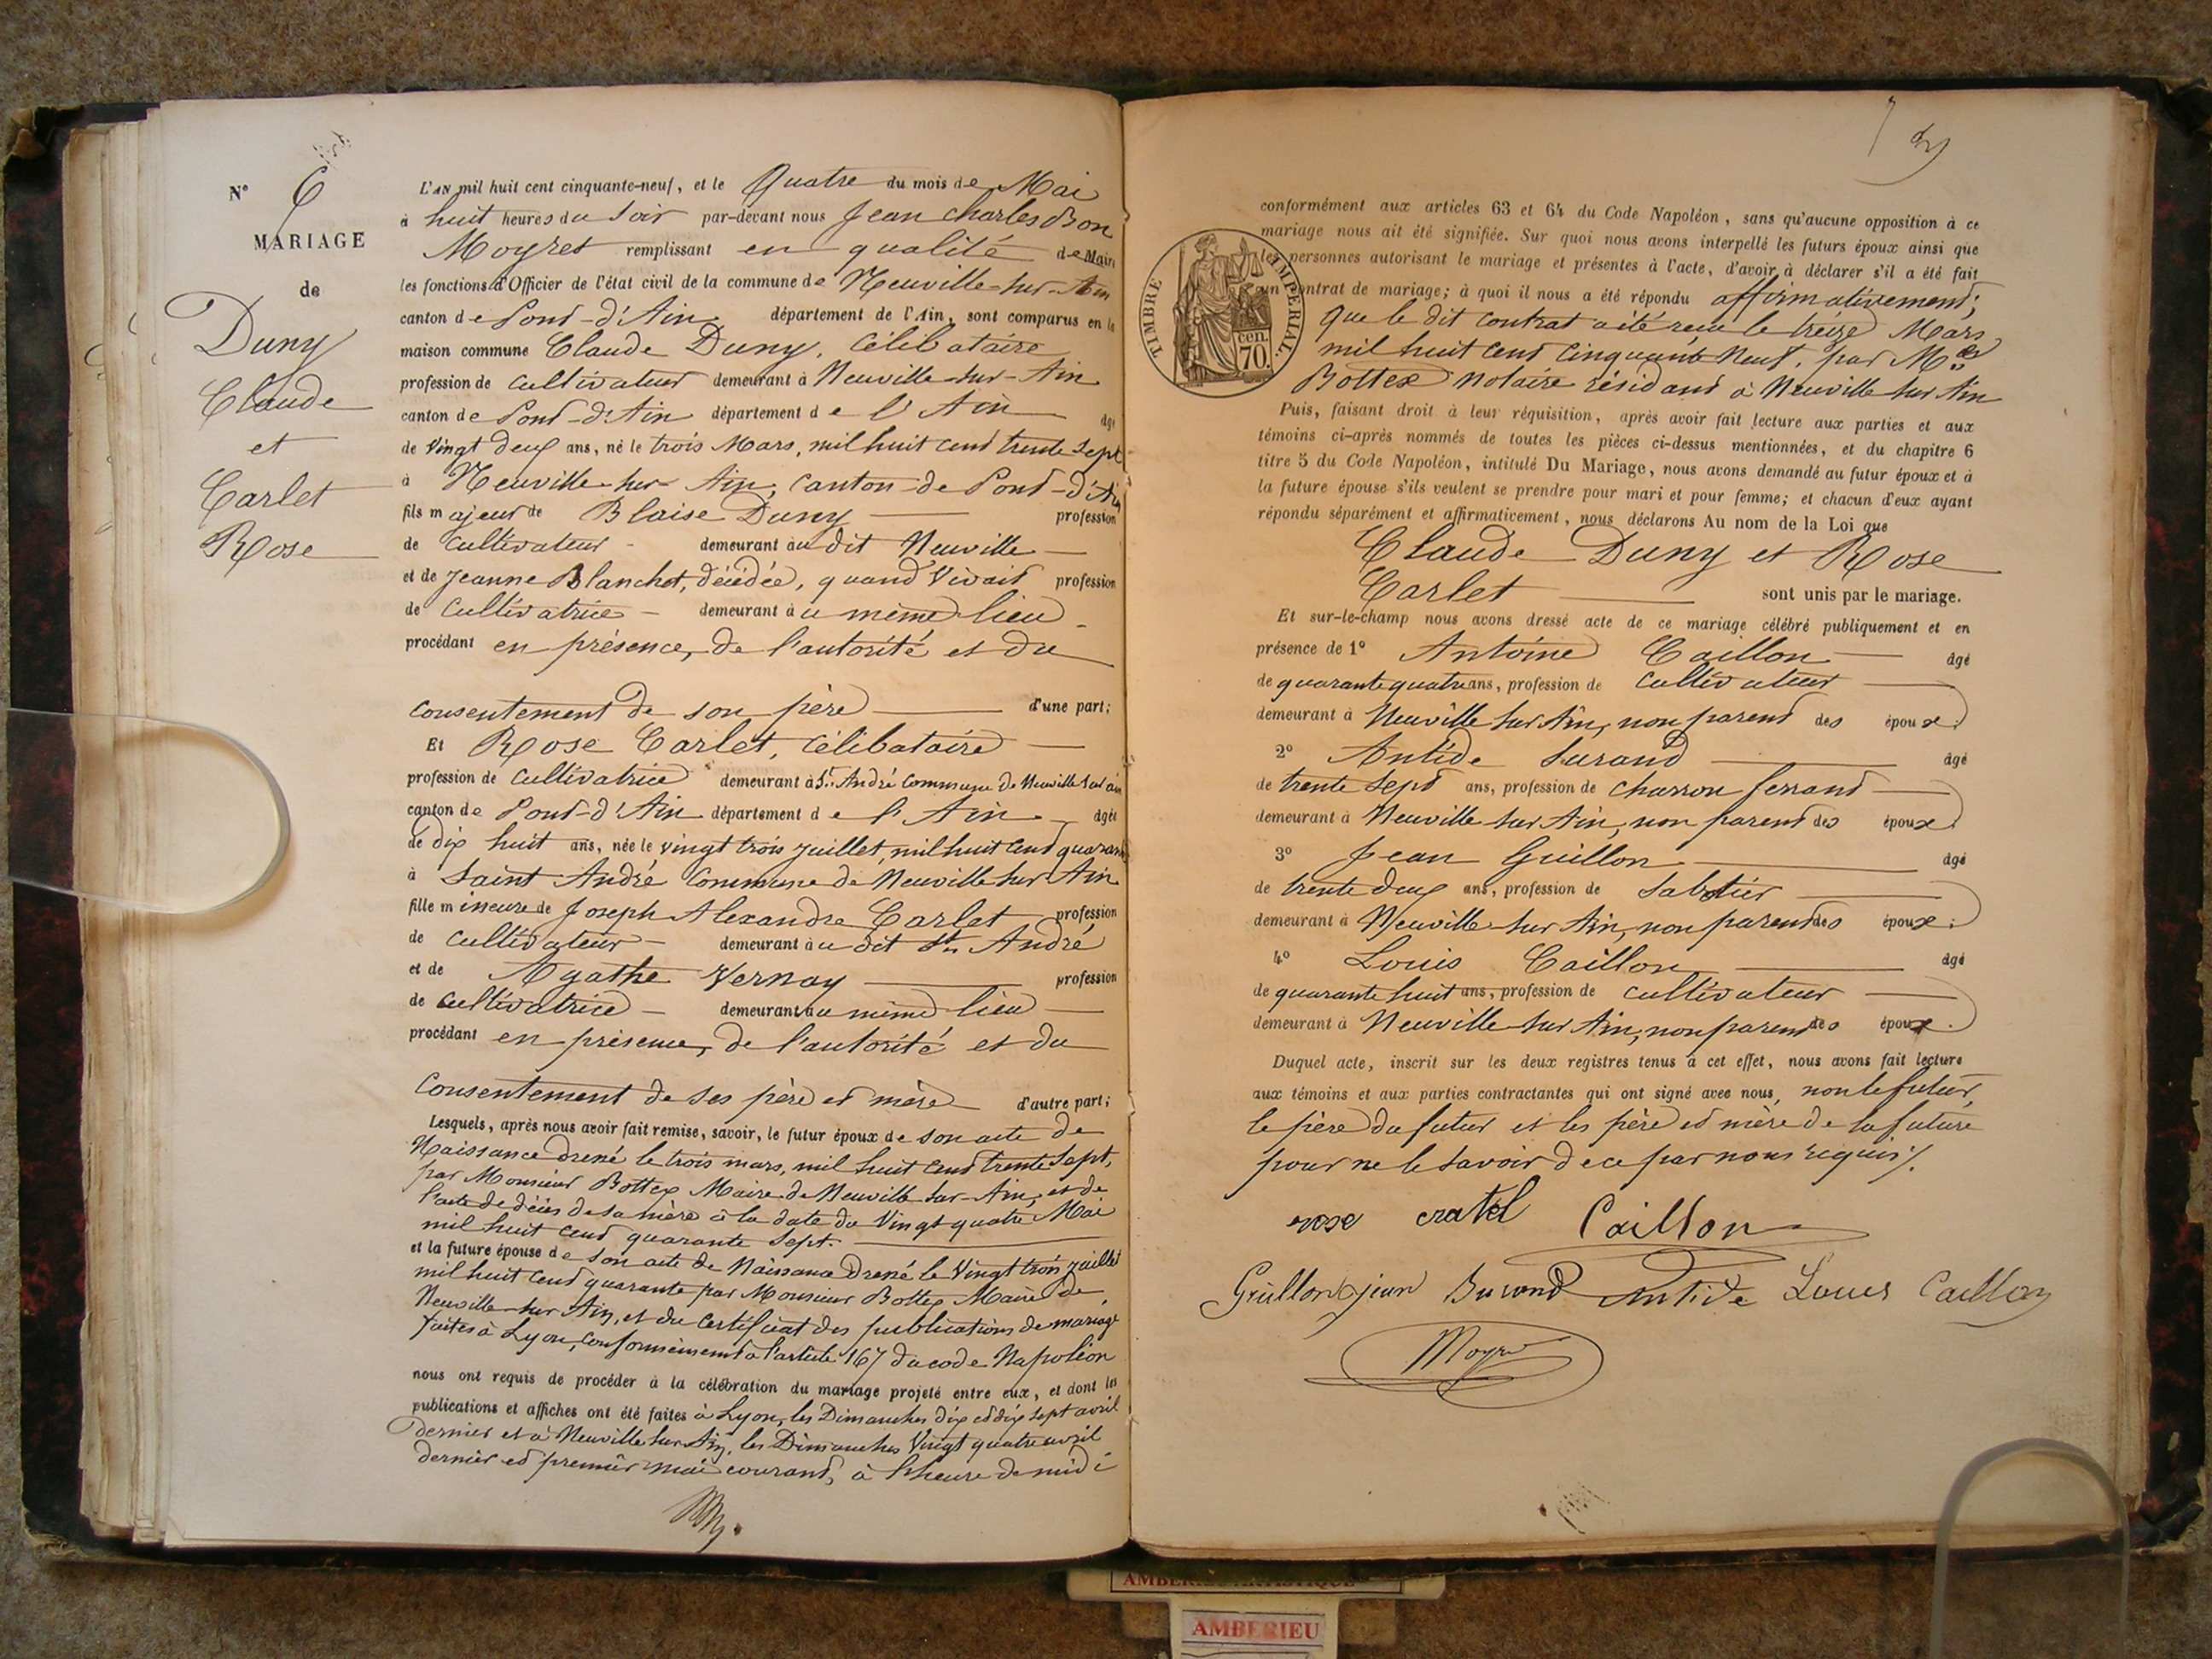 N° 6
MARIAGE
de
Duny
Claude
et
Carlet
Rose
L'AN mil huit cent cinquante-neuf, et le Quatre du mois de Mai
à huit heures du Soir par-devant nous Jean Charles Bon
Moyret remplissant en qualité de Maire
les fonctions d'Officier de l'état civil de la commune de Neuville-sur-Ain
canton de Pont-d'Ain département de l'Ain, sont comparus en la
maison commune Claude Duny, Célibataire
profession de Cultivateur demeurant à Neuville-sur-Ain
canton de Pont-d'Ain département de l'Ain âgé
de Vingt deux ans, né le trois Mars, mil huit cent trente sept
à Neuville-sur-Ain, Canton de Pont-d'Ain
fils majeur de Blaise Duny profession
de Cultivateur demeurant au dit Neuville
et de Jeanne Blanchet, décédée, quand Vivait profession
de Cultivatrice demeurant au même lieu
procédant en présence, de l'autorité et du
consentement de son père d'une part;
Et Rose Carlet, Célibataire
profession de Cultivatrice demeurant à St. André Commune de Neuville Sur ain
canton de Pont-d'Ain département de l'Ain âgée
de dix huit ans, née le vingt trois Juillet, mil huit Cent quarante
à Saint André Commune de Neuville Sur Ain
fille mineure de Joseph Alexandre Carlet profession
de Cultivateur demeurant au dit St. André
et de Agathe Vernay profession
de Cultivatrice demeurant au même lieu
procédant en présence, de l'autorité et du
Consentement de ses père et mère d'autre part;
Lesquels, après nous avoir fait remise, savoir, le futur époux de son acte de
Naissance dressé le trois mars, mil huit Cent trente Sept,
par Monsieur Bottex Maire de Neuville Sur-Ain, et de
l'acte de décès de sa mère à la date du Vingt quatre Mai
mil huit Cent quarante Sept.
et la future épouse de Son acte de Naissance dressé le Vingt trois juillet
mil huit Cent quarante par Monsieur Bottex Maire de
Neuville-sur Ain, et du Certificat des publications de mariage
faites à Lyon, Conformément à l'article 167 du code Napoléon
nous ont requis de procéder à la célébration du mariage projeté entre eux, et dont les
publications et affiches ont été faites à Lyon, les Dimanches dix et dix sept avril
dernier et à Neuville Sur Ain, les Dimanches Vingt quatre avril
dernier et premier mai courant, à l'heure de midi
conformément aux articles 63 et 64 du Code Napoléon, sans qu'aucune opposition à ce
mariage nous ait été signifiée. Sur quoi nous avons interpellé les futurs époux ainsi que
les personnes autorisant le mariage et présentes à l'acte, d'avoir à déclarer s'il a été fait
un contrat de mariage; à quoi il nous a été répondu affirmativement;
que le dit contrat a été reçu le treize Mars
mil huit Cent Cinquante Neuf, par Me
Bottex Notaire résidant à Neuville Sur Ain
TIMBRE IMPERIAL.
cen.
70.
Puis, faisant droit à leur réquisition, après avoir fait lecture aux parties et aux
témoins ci-après nommés de toutes les pièces ci-dessus mentionnées, et du chapitre 6
titre 5 du Code Napoléon, intitulé Du Mariage, nous avons demandé au futur époux et à
la future épouse s'ils veulent se prendre pour mari et pour femme; et chacun d'eux ayant
répondu séparément et affirmativement, nous déclarons Au nom de la Loi que
Claude Duny et Rose
Carlet sont unis par le mariage.
Et sur-le-champ nous avons dressé acte de ce mariage célébré publiquement et en
présence de 1° Antoine Caillon âgé
de quarante quatre ans, profession de Cultivateur
demeurant à Neuville Sur Ain, non parent des époux.
2° Antide Durand âgé
de trente Sept ans, profession de Charron ferrant
demeurant à Neuville Sur Ain, non parent des époux.
3° Jean Guillon âgé
de trente deux ans, profession de Sabotier
demeurant à Neuville Sur Ain, non parent des époux.
4° Louis Caillon âgé
de quarante huit ans, profession de Cultivateur
demeurant à Neuville Sur Ain, non parent des époux.
Duquel acte, inscrit sur les deux registres tenus à cet effet, nous avons fait lecture
aux témoins et aux parties contractantes qui ont signé avec nous, non le futur,
le père du futur et les père et mère de la future
pour ne le Savoir de ce par nous requis %.
rose cratel Caillon
Guillon jean Durand Antide Louis Caillon
Moyret
AMBERIEU